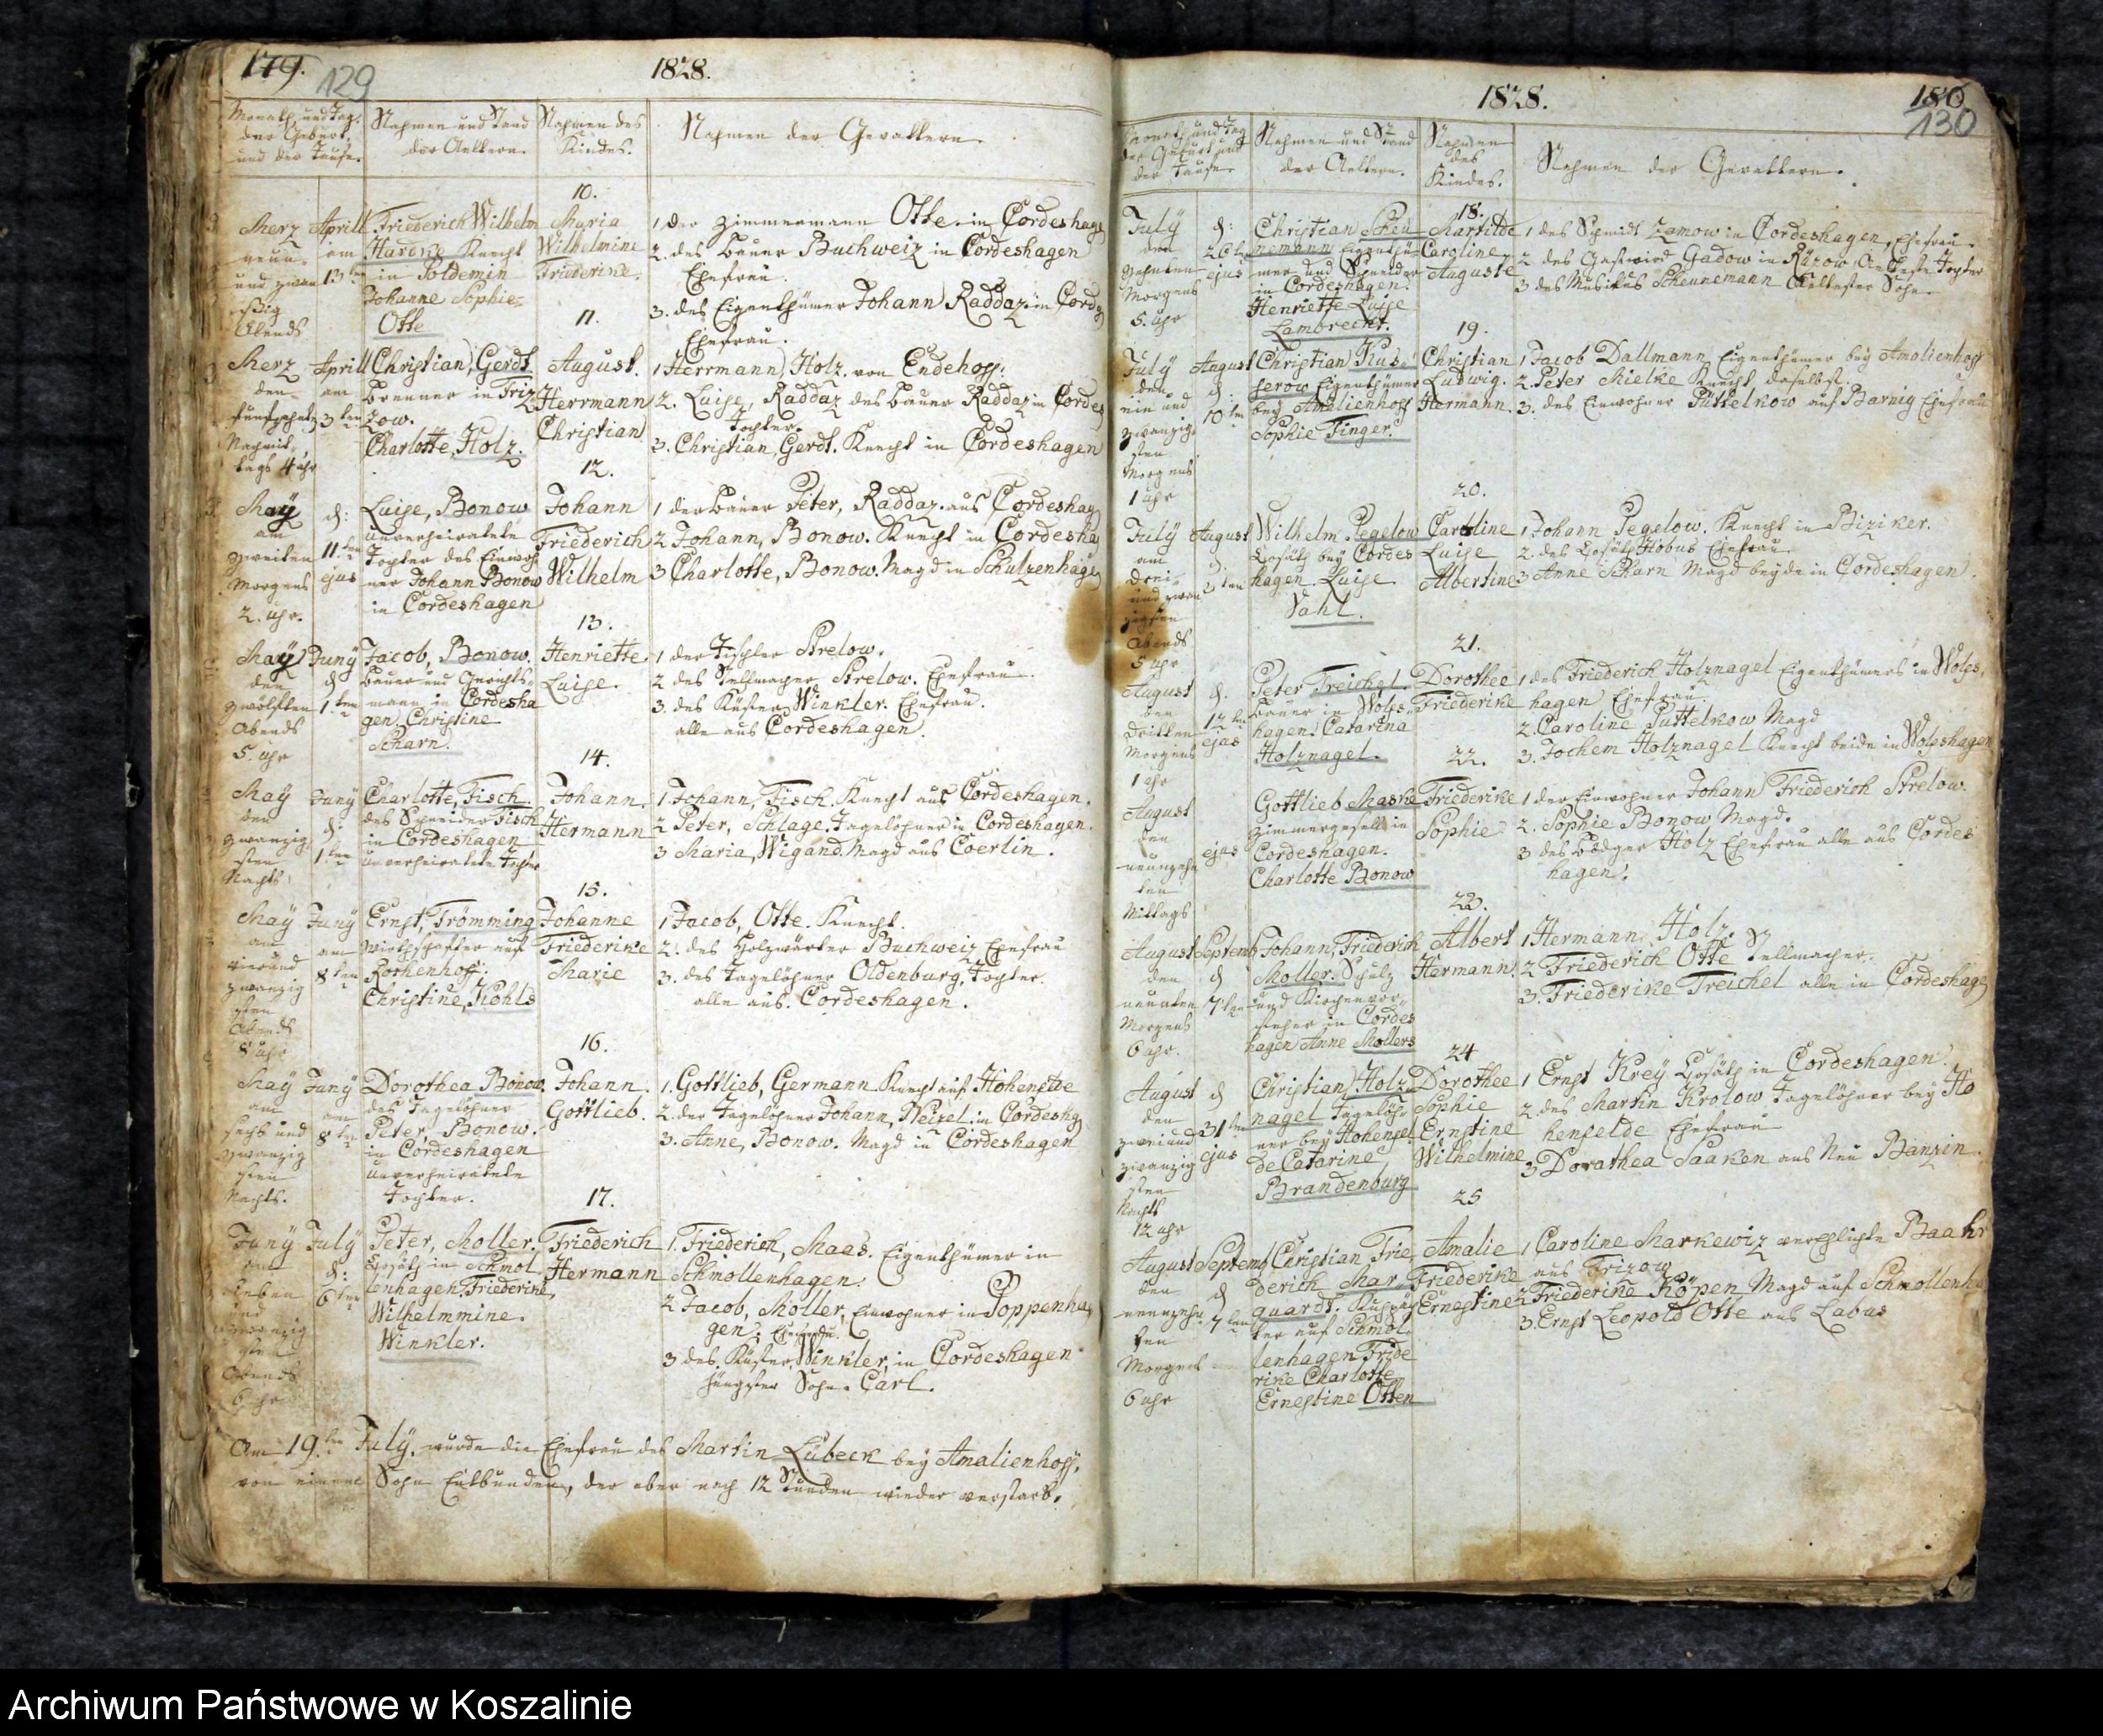 179.
129
1828.
Monath und Tag
der Geburt.
und der Taufe.
Nahmen und Stand
der Aeltern.
Nahmen des
Kindes.
Nahmen der Gevattern.
10.
Merz
neun
und zwan
zigsten
Abends
Aprill
am
13 ten
Friederich Wilhelm
Knecht
in Poldemin
Johanne Sophie
Otte
Maria
Wilhelmine
Friederike.
1 der Zimmermann Otte in Cordeshage
2. des Bauer Buchweiz in Cordeshagen
Ehefrau.
3. des Eigenthümer Johann Raddaz in Cord
Ehefrau.
11.
Merz
den
funfzehn
Nachmit
tags 4 uhr
Aprill
am
3 ten
Christian, Gerdt
Brenner in Friz
zow.
Charlotte, Holz.
August.
Herrmann
Christian
1 Herrmann, Holz. von Endehoff.
2. Luise, Raddaz des Bauer Raddaz in Cordes
Tochter.
3. Christian, Gerdt. Knecht in Cordeshagen
12.
May
am
zweiten
Morgens
2. uhr.
d:
11. ten
ejus
Luise, Bonow
unverheiratete
Tochter des Einwoh
ner Johann Bonow
in Cordeshagen
Johann
Friederich
Wilhelm
1 der Bauer Peter, Raddaz. aus Cordeshag
2 Johann, Bonow. Knecht in Cordesha
3 Charlotte, Bonow. Magd in Schulzenhage
13.
May
den
zwölften
Abends
5. uhr
Juny
d
1. ten
Jacob, Bonow.
Bauer und Gerichts-
mann in Cordesha
gen. Christine
Scharn.
Henriette
Luise.
1 der Tischler Strelow.
2 des Stellmacher Strelow. Ehefrau.
3. des Küster Winkler. Ehefrau.
alle aus Cordeshagen.
14.
May
den
zwanzig
sten
Nachts
Juny
d:
1. ten
Charlotte, Tisch.
des Schneider Tisch
in Cordeshagen
unverheiratete Tochter
Johann.
Hermann
1. Johann, Tisch. Knecht aus Cordeshagen.
2 Peter, Schlage. Tagelöhner in Cordeshagen.
3 Maria, Wigand. Magd aus Coerlin.
15.
May
am
vierund
zwanzig
sten
Abends
8 uhr
Juny
am
8 ten
Ernst, Trömming
Wirthschafter auf
Christine, Kohls
Johanne
Friederike
Marie
1 Jacob, Otte. Knecht.
2. des Holzwärter Buchweiz Ehefrau
3. des Tagelöhner Oldenburg, Tochter.
alle aus. Cordeshagen.
16.
May
am
sechs und
zwanzig
sten
Nachts.
Juny
am
8 ten
Dorothea Bonow.
des Tagelöhner
Peter, Bonow.
in Cordeshagen
unverheiratete
Tochter.
Johann.
Gottlieb.
1. Gottlieb, Germann Knecht auf Hohenfelde
2. der Tagelöhner Johann, Weizel in Cordeshg
3. Anne, Bonow. Magd in Cordeshagen
17.
Juny
am
sieben
und
zwanzig
sten
Abends
6 uhr
July
d:
6 ten
Peter, Moller.
Cosäth in Schmol
lenhagen. Friederike
Wilhelmmine.
Winkler.
Friederich
Hermann
1. Friederich, Maas. Eigenthümer in
Schmollenhagen.
2 Jacob, Möller, Einwohner in Poppenha
gen. Ehefrau.
3 des Küster, Winkler, in Cordeshagen
jüngster Sohn. Carl.
Am 19. ten July. wurde die Ehefrau des Martin Lübeck bey Amalienhoff.
von einem Sohn Entbunden, der aber nach 12 Stunden wieder verstarb.
1828.
180.
130
Monath und Tag
der Geburt und
der Taufe
Nahmen und Stand
der Aeltern.
Nahmen
des
Kindes.
Nahmen der Gevattern.
18.
July
den
zehnten
Morgens
5. uhr
d:
26 ten
ejus
Christian Scheu
nemann Eigenthü
mer und Schneider
in Cordeshagen.
Henriette Luise
Lambrecht.
Mathilde
Caroline
Auguste
1 des Schmidt Zamow in Cordeshagen, Ehefrau.
2 des Gastwird Gadow in Rüzow Aelteste Tochter
3 des Musikus Scheunemann Aeltester Sohn
19.
July
den
ein und
zwanzig
sten
Morgens
1 uhr
August
d.
10 ten
Christian Kus
serow Eigenthümer
bey Amalienhoff
Sophie Finger.
Christian
Ludwig.
Hermann.
1 Jacob Dallmann, Eigenthümer bey Amalienhoff
2. Peter Mielke Knecht daselbst.
3. des Einwohner Püttelkow auf Barnig Ehefrau
20.
July
am
drei
und zwan
zigsten
Abends
5 uhr
August
d.
3 ten
Wilhelm Pegelow
Cosäth bey Cordes
hagen. Luise
Vahl.
Caroline
Luise
Albertine
1 Johann Pegelow. Knecht in Biziker.
2. des Cosäth Hobus Ehefrau
3 Anne Scharn Magd beyde in Cordeshagen.
21.
August
den
dritten
Morgens
1 uhr
d.
17 ten
ejus
Peter Treichel
Bauer in Wols
hagen. Catarina
Holznagel.
Dorothee
Friederike
1 des Friederich Holznagel Eigenthümers in Wols,
hagen Ehefrau
2. Caroline Püttelkow Magd
3. Jochem Holznagel Knecht beide in Wolshagen
22.
August
den
neunzehn
ten
Mittags
ejus
Gottlieb Maske
Zimmergesell in
Cordeshagen.
Charlotte Bonow
Friederike
Sophie
1 der Einwohner Johann Friederich Strelow.
2. Sophie Bonow Magd.
3 des Bödger Holz Ehefrau alle aus Cordes
hagen.
23.
August
den
neunten
Morgens
6 uhr.
Septemb
d
7 ten
Johann, Friederich
Moller. Schulz
und Kirchenvor
steher in Cordes
hagen Anne Mollers
Albert
Hermann.
1 Hermann, Holz.
2 Friederich Otte Stellmacher.
3. Friederike Treichel alle in Cordeshage
24
August
den
zwei und
zwanzig
sten
Nachts
12 uhr
d
31 ten
ejus
Christian Holz
nagel Tagelöh
ner bey Hohenfel
de Catarine
Brandenburg
Dorothee
Sophie
Ernstine
Wilhelmine
1 Ernst Krey Cosäth in Cordeshagen.
2 des Martin Krolow Tagelöhner bey Ho
henfelde Ehefrau
3 Dorathea Saaken aus Neu Banzin.
25
August
den
neunzehn
ten
Morgens
6 uhr
Septemb
d
7 ten
Christian Frie
derich Mar
quardt.
ter auf Schmol
lenhagen Fride
rike Charlotte
Ernestine Otten
Amalie
Friederike
Ernestine
1 Caroline Markewiz verehlichte Baahr
aus Frizow
2 Friederike Köpen Magd auf Schmollenh
3. Ernst Leopold Otte aus Labus
Archiwum Państwowe w Koszalinie